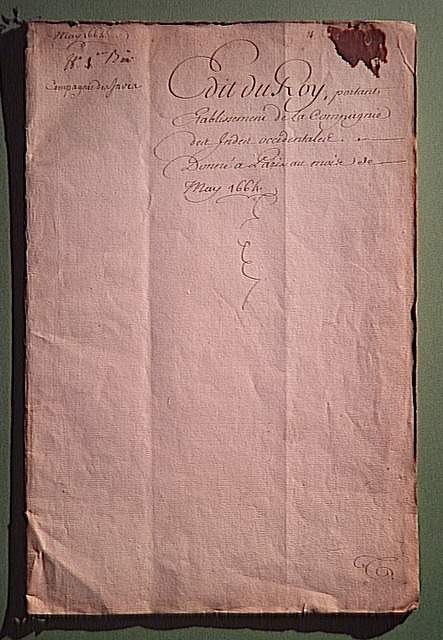 May 1664
Compagnie des Indes
Edit du Roy, portant
Etablissement de la Compagnie
des Indes occidentales
Donné a Paris au mois de
May 1664.